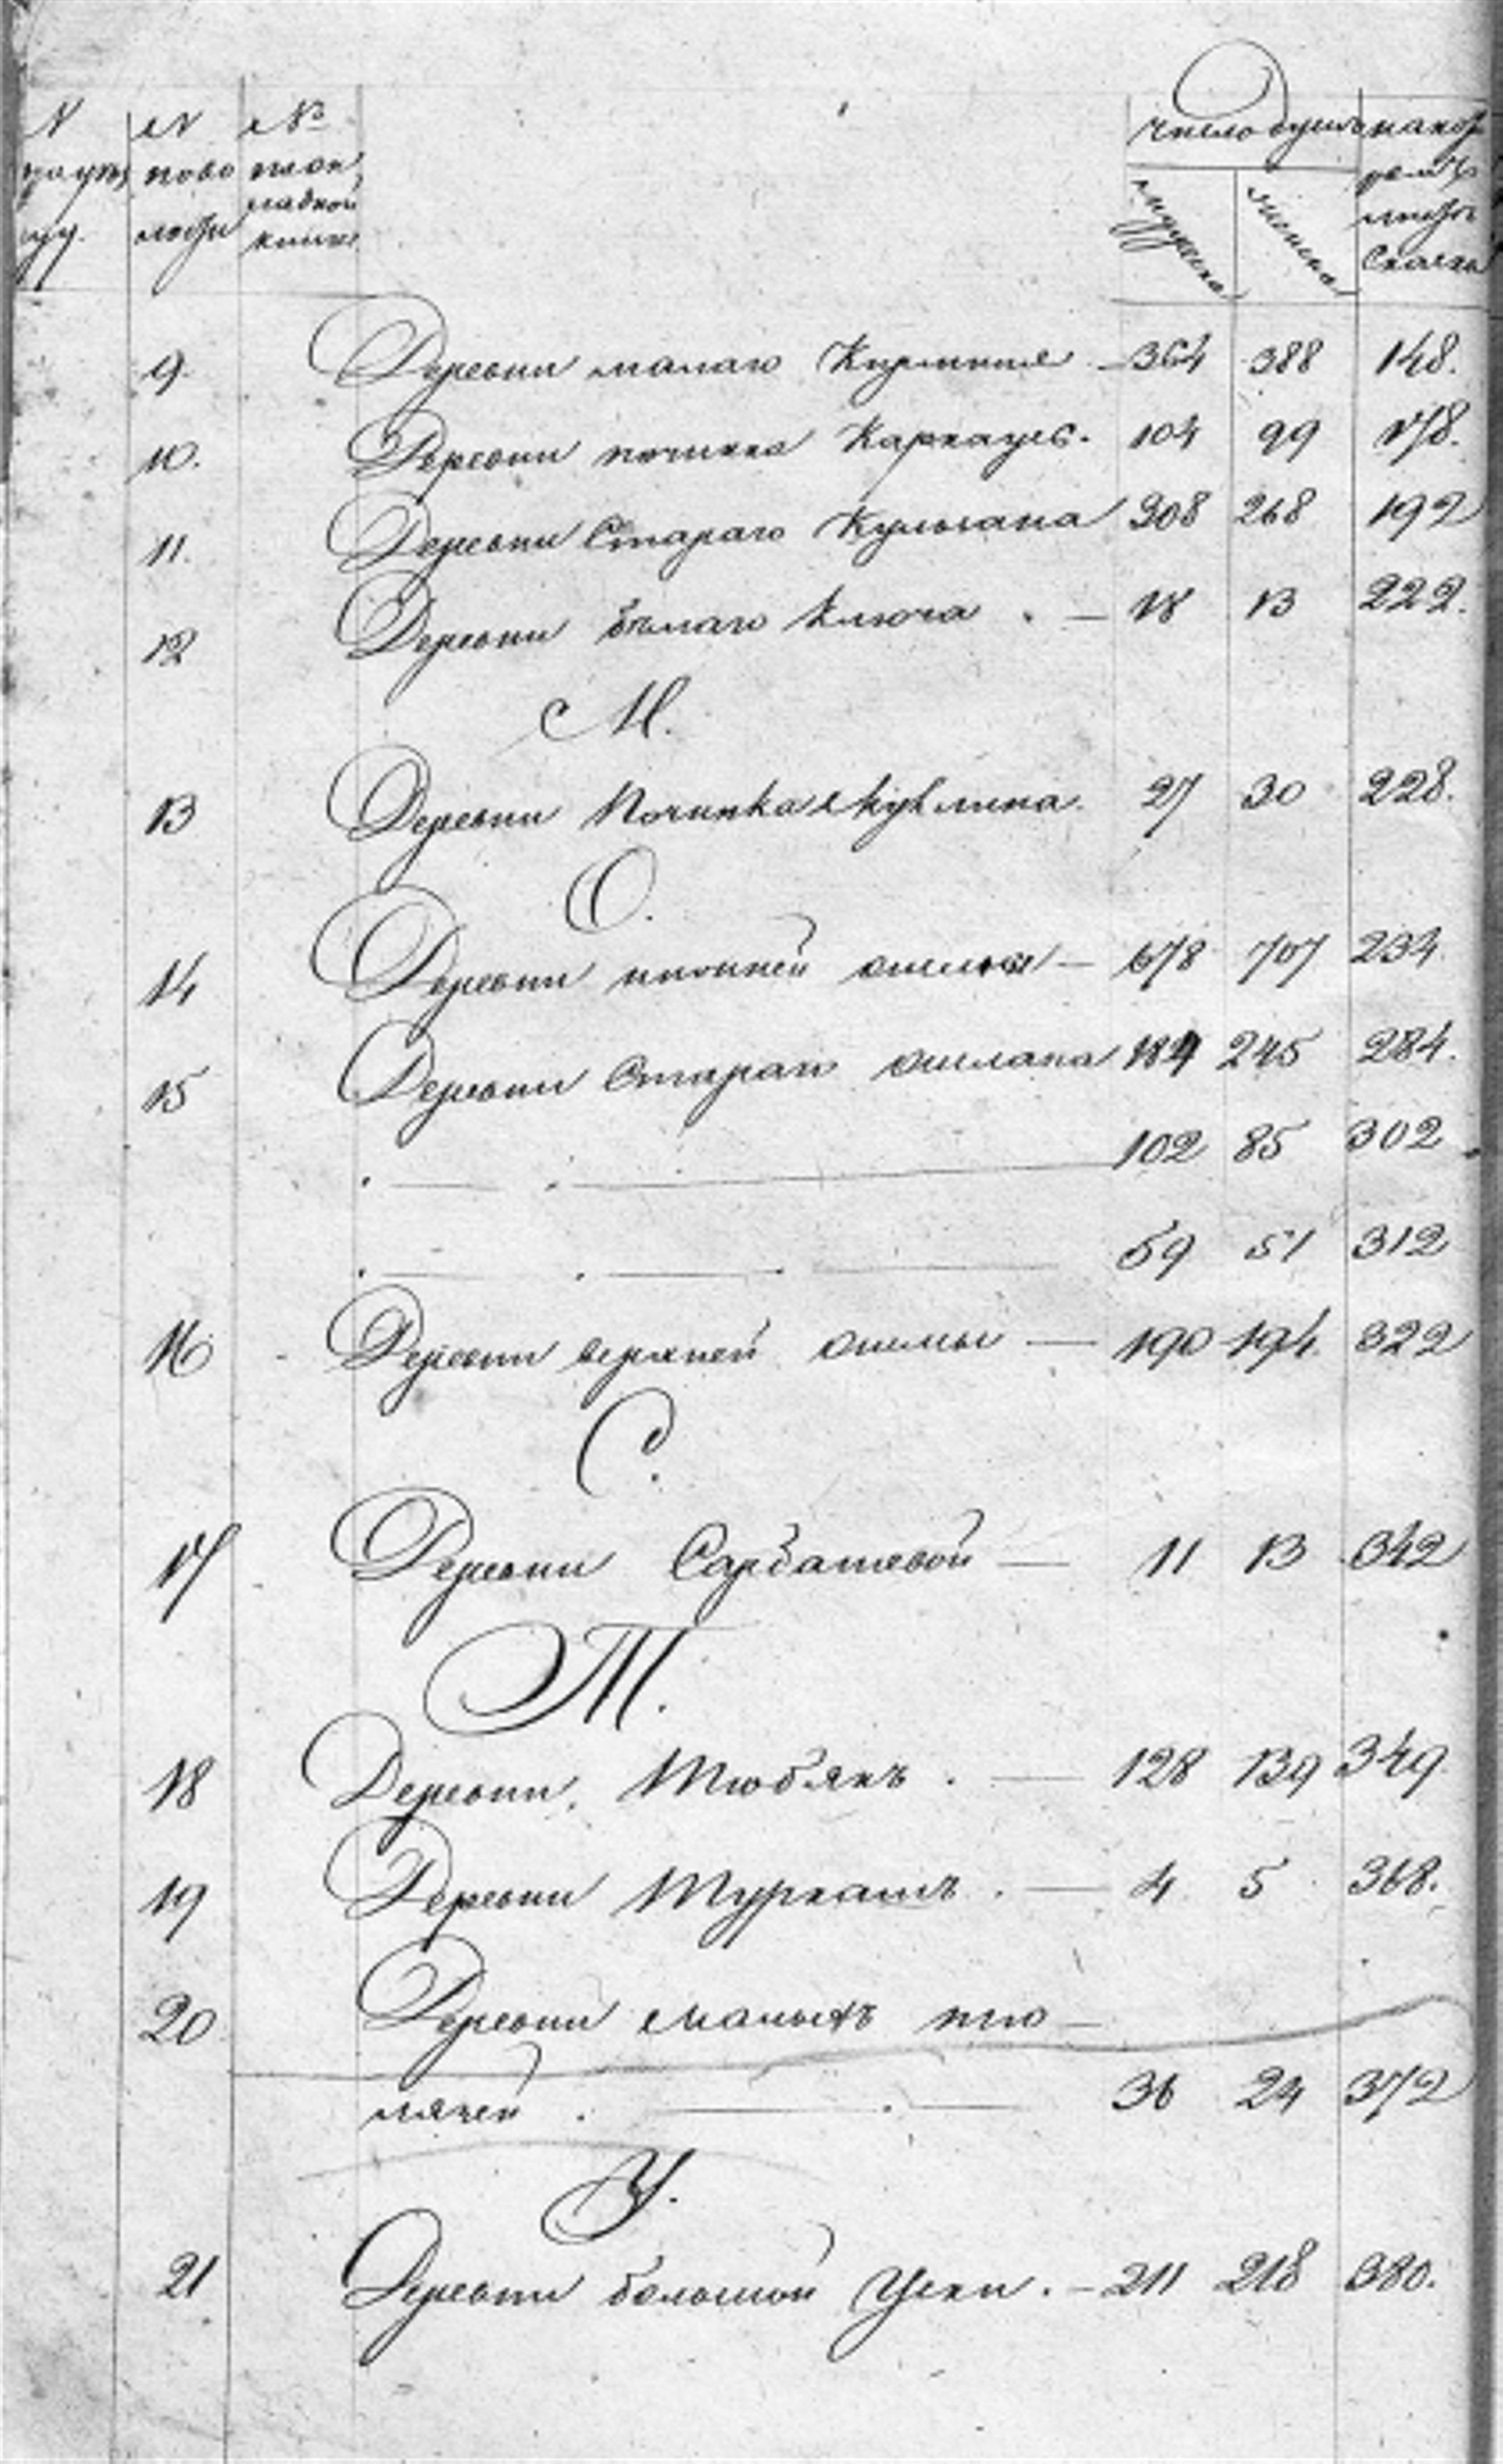 N N №
по уѣз ново окладной
ду. люсти книги
число душъ на кото
мужеска женска ромъ листѣ сказка
9. Деревни малаго Кирменя — 364 388 148.
10. Деревни починка Каркаусъ. 104 99 178.
11. Деревни Стараго Кульгана 308 268 192
12 Деревни бѣлаго Ключа . — 18 13 222.
М.
13 Деревни Починка 27 30 228.
О.
14 Деревни нижней ошмы — 678 707 234
15 Деревни Стараго ошлана 184 245 284.
102 85 302
59 51 312
16 Деревни верхней ошмы — 190 194 322
С.
17 Деревни Сарбашевой — 11 13 342
Т.
18 Деревни Тюбякъ . — 128 139 349
19 Деревни Туркашъ . — 4 5 368.
20 Деревни Малыхъ тю —
лячей . — 36 24 372
У.
21 Деревни большой Уски . — 211 218 380.